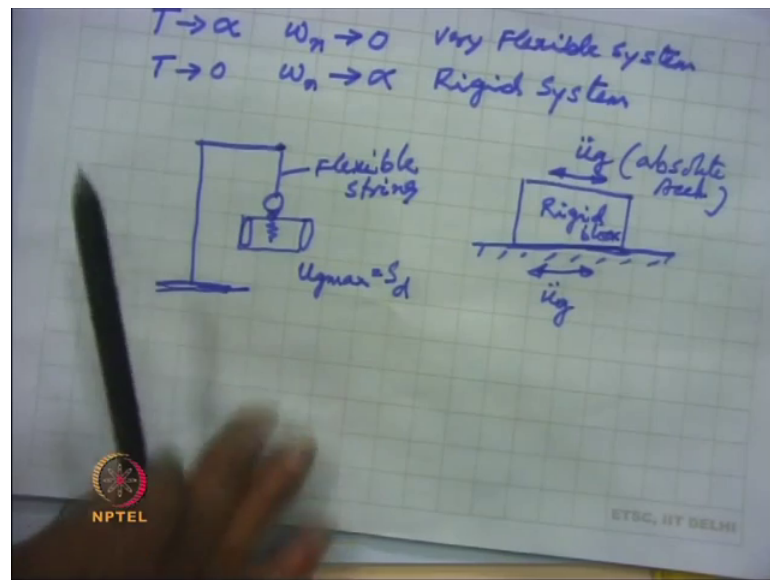 T→α ωn→0 Very Flexible System
T→0 ωn→α Rigid System
Flexible
string
üg (absolute
Accln)
Rigid
block
ugmax = Sd
üg
NPTEL
ETSC, IIT DELHI